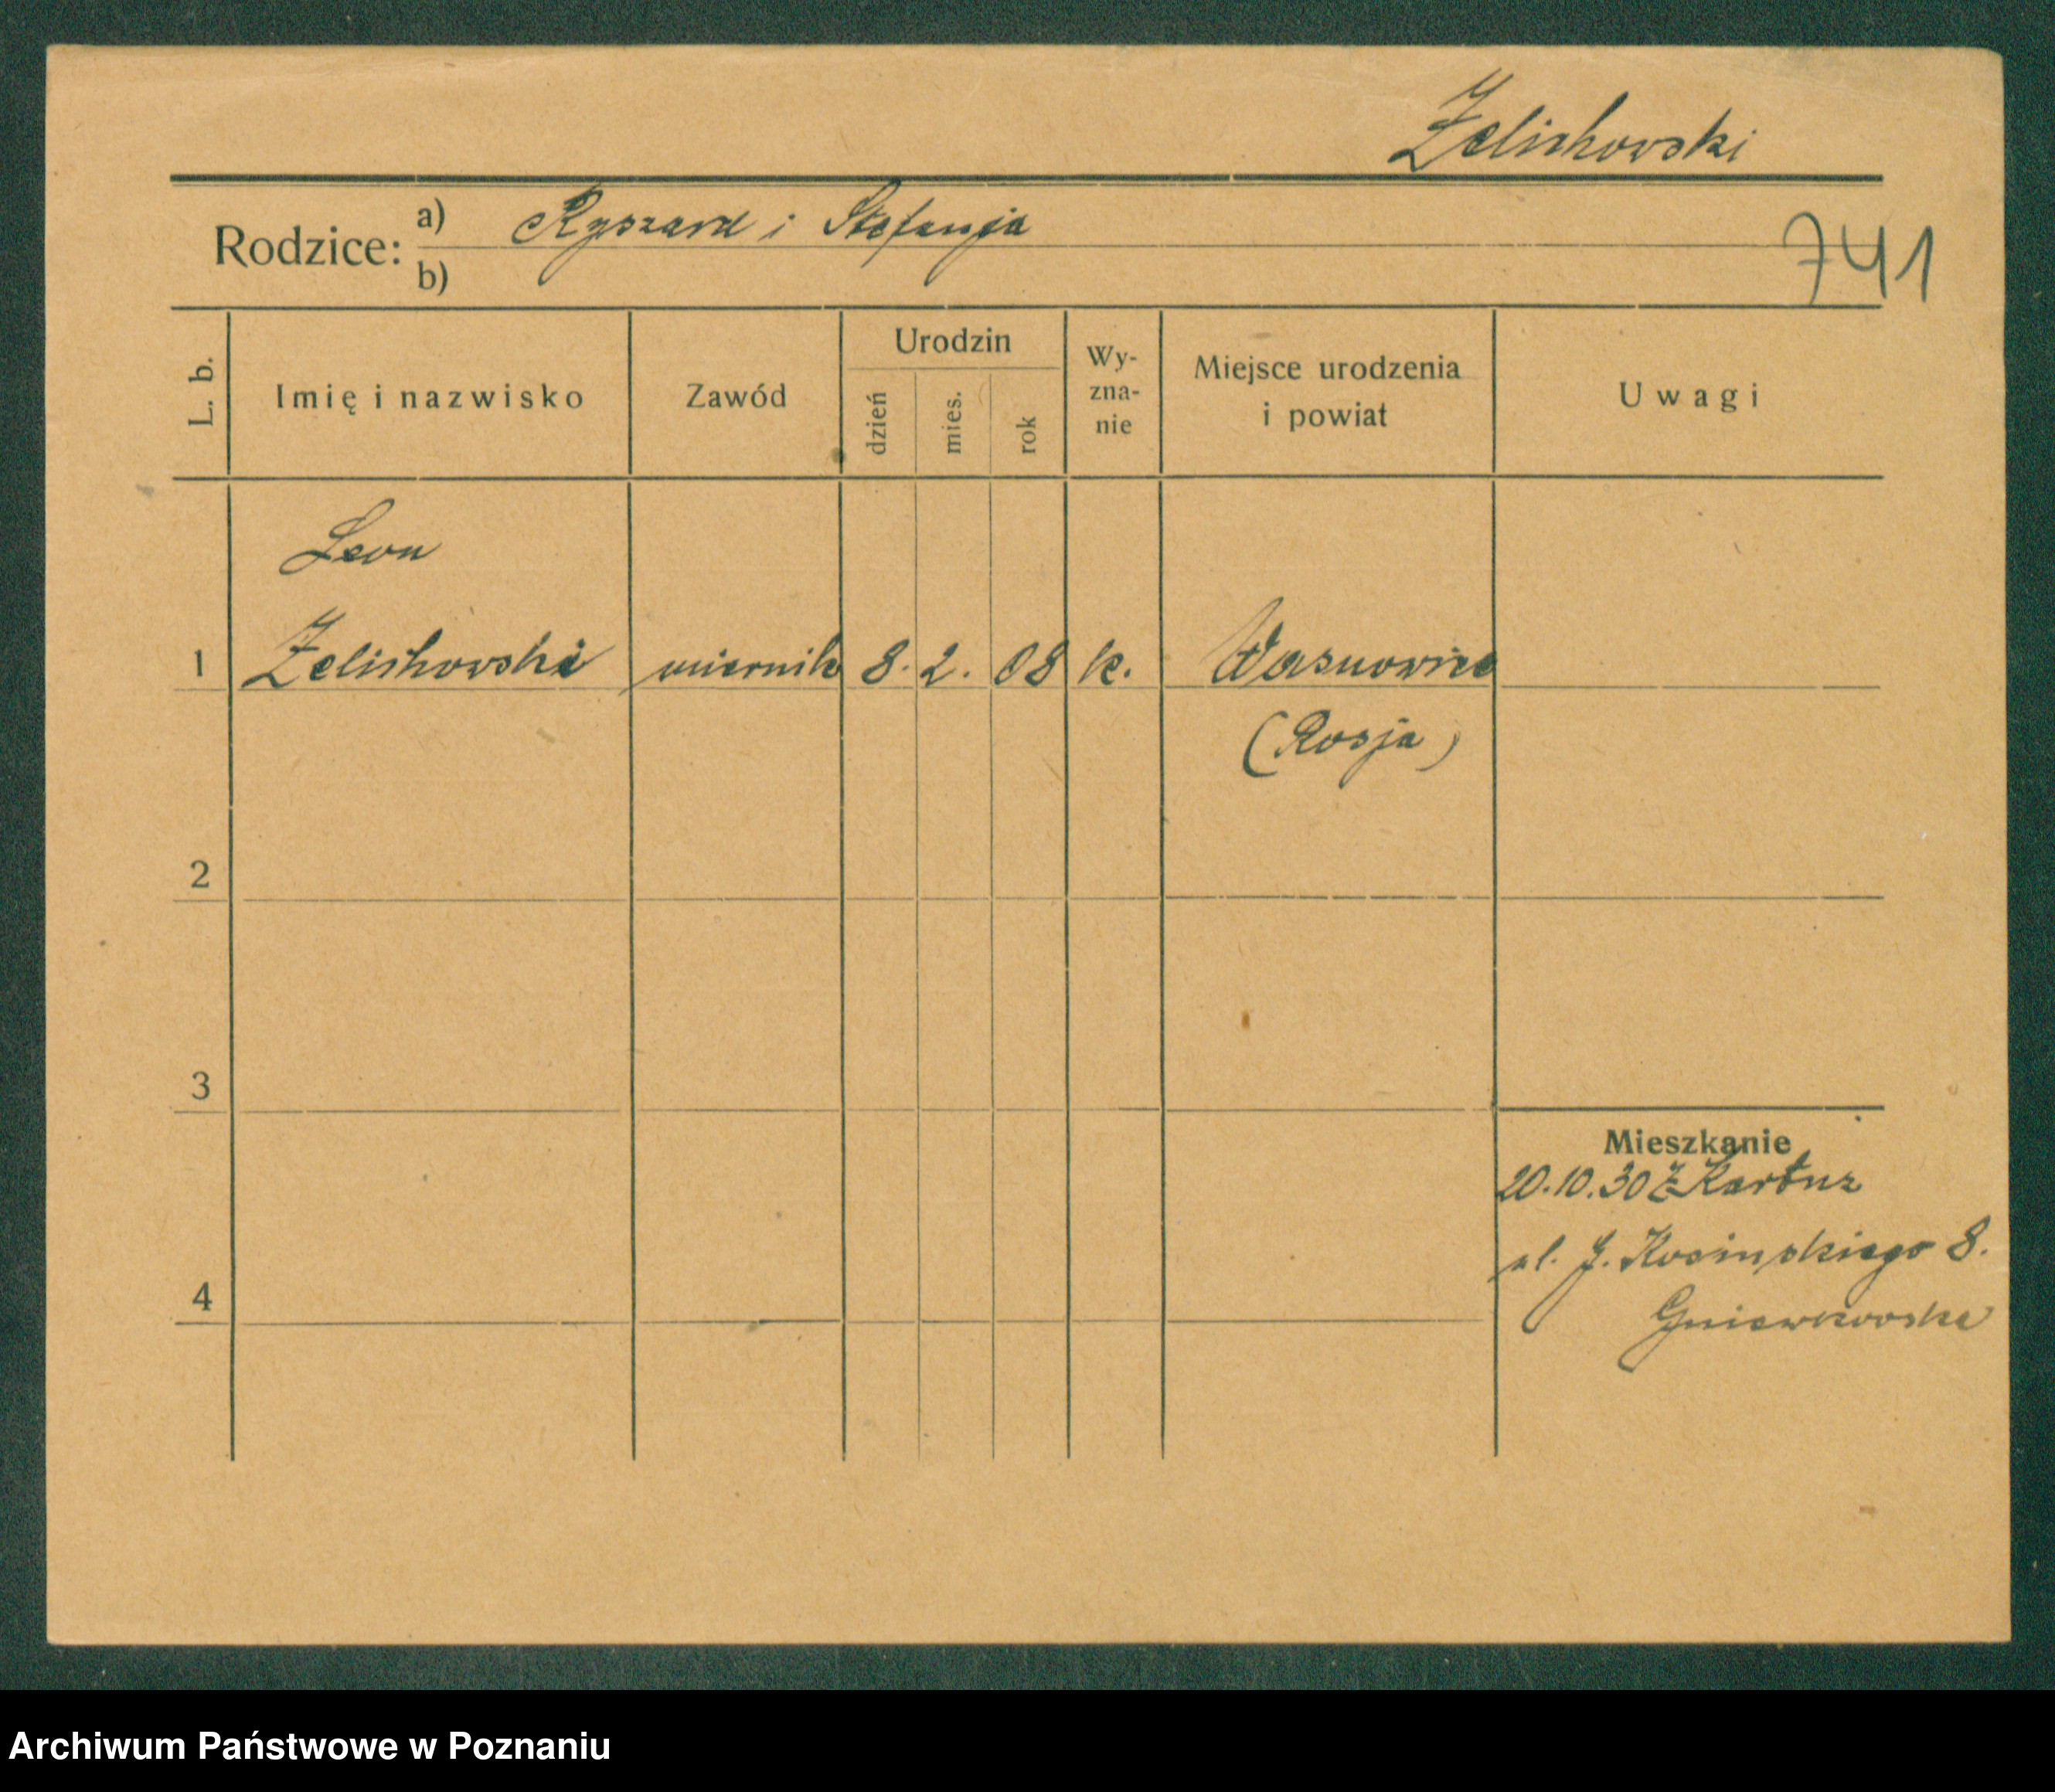 Żelichowski
Rodzice: a) Ryszard i Stefanja
b)
741
L. b.
Imię i nazwisko
Zawód
Urodzin
dzień
mies.
rok
Wy-
zna-
nie
Miejsce urodzenia
i powiat
Uwagi
Leon
1 Żelichowski miernik 8. 2. 08 k. Wasnowice
(Rosja)
2
3
4
Mieszkanie
20.10.30 z Kartuz
ul. J. Kosińskiego 8.
Archiwum Państwowe w Poznaniu